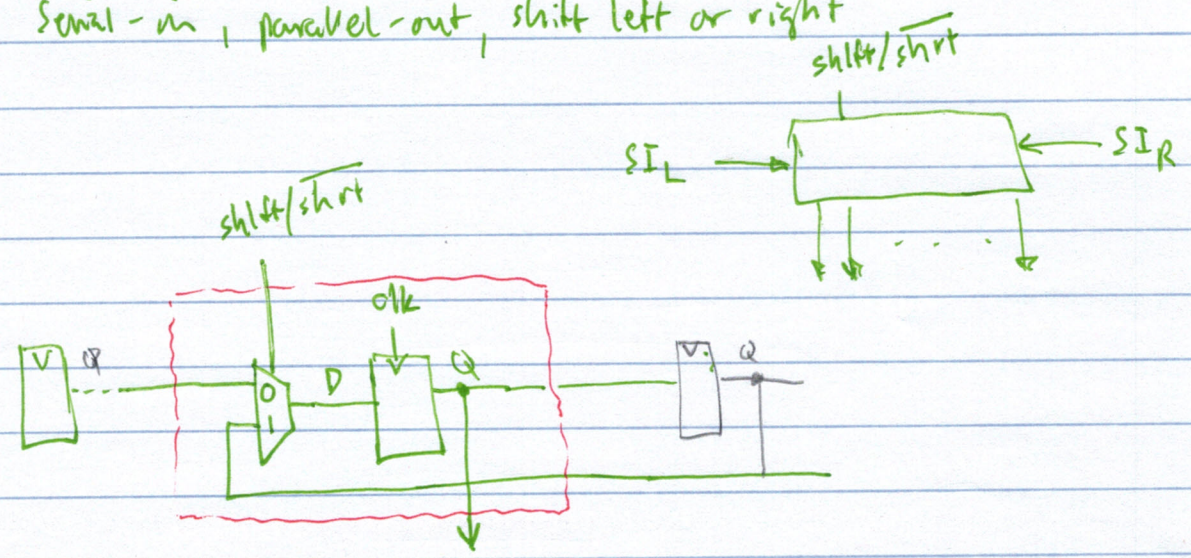 Serial-in, parallel-out, shift left or right
shlft/shrt
SI_L
SI_R
shlft/shrt
clk
Q
D
Q
Q
0
1